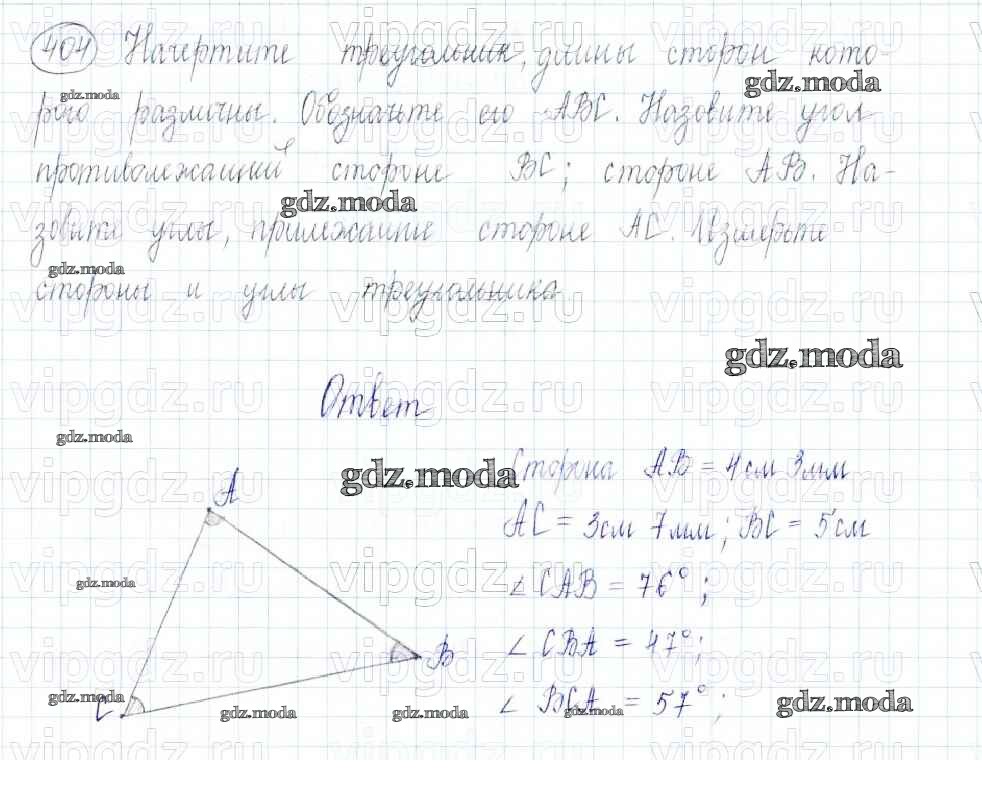 404 Начертите треугольник, длины сторон кото-
рого различны. Обозначьте его ABC. Назовите угол
противолежащий стороне BC; стороне AB. На-
зовите углы, прилежащие стороне AC. Измерьте
стороны и углы треугольника
Ответ
Сторона AB = 4см 3мм
AC = 3см 7мм; BC = 5см
∠CAB = 76°;
∠CBA = 47°;
∠BCA = 57°;
A
B
C
gdz.moda
vipgdz.ru